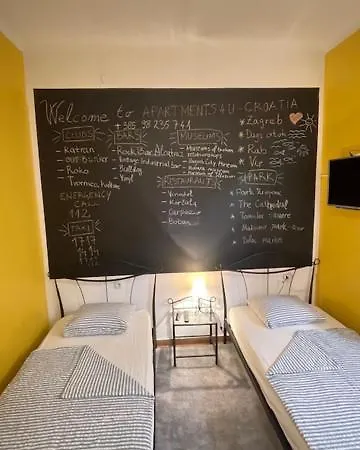 Welcome to APARTMENTS4U-CROATIA
+385 98 235 741
CLUBS
• Katran
• Roko
• Tvornica kulture
EMERGENCY
112
TAXI
1717
BARS
• Rock Bar Alcatraz
• Vintage Industrial bar
• Bulldog
• Vinyl
MUSEUMS
• Museum of broken relationships
• Zagreb City Museum
RESTAURANT
• Vinodol
• Korčula
• Carpaccio
• Boban
* Zagreb
* Dugi otok
* Rab
* Vir
PARK
• Park Zrinjevac
• The Cathedral
• Tomislav Square
• Maksimir park-zoo